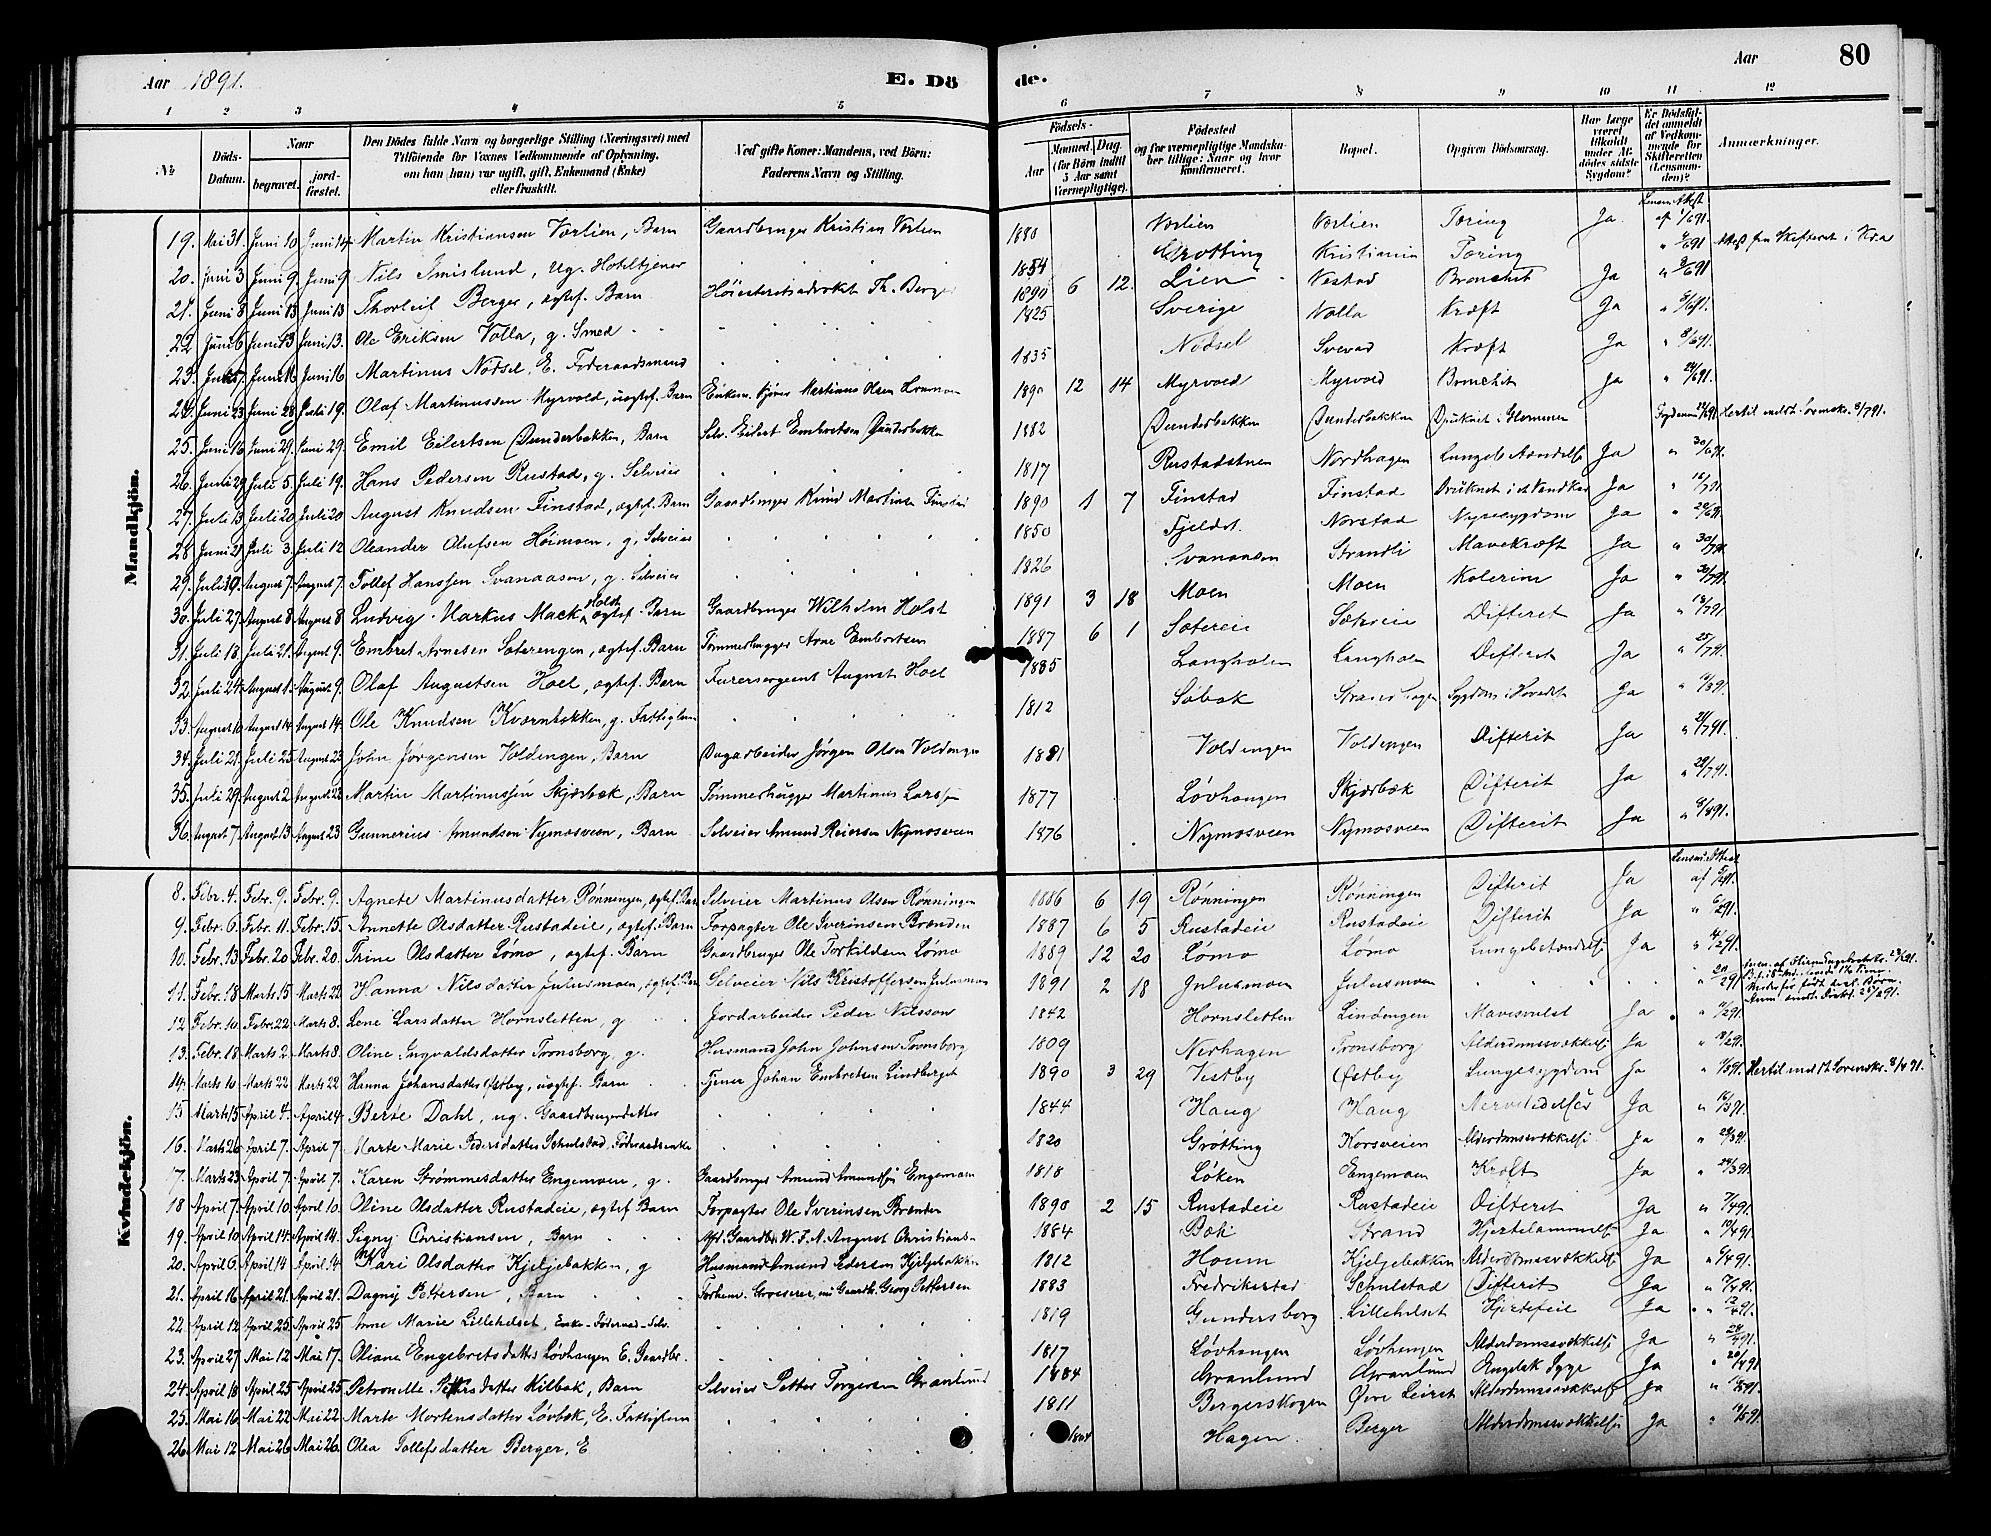 Aar 1891. E. Dö de. Aar 80
1 2 3 4 5 6 7 8 9 10 11 12
№ Döds-Datum. Naar begravet. jord-fæstet. Den Dödes fulde Navn og borgerlige Stilling (Næringsvei) med Tilföiende for Voxnes Vedkommende af Oplysning, om han (hun) var ugift, gift, Enkemand (Enke) eller fraskilt. Ved gifte Koner: Mandens, ved Börn: Faderens Navn og Stilling. Födsels- Aar Maaned Dag (for Börn indtil 5 Aar samt Værnepligtige). Födested og for værnepligtige Mandskaber tillige: Naar og hvor konfirmeret. Bopæl. Opgiven Dödsaarsag. Har Læge været tilkaldt under Afdödes sidste Sygdom? Er Dödsfaldet anmeldt af Vedkommende for Skifteretten (Lensmanden)? Anmærkninger.
Mandkjön.
19. Mai 31. Juni 10 Juni 14 Martin Kristiansen Vorlien, Barn Gaardbruger Kristian Vorlien 1880 Vorlien Vorlien Tæring Ja Lensm. Attest af 1/6 91.
20. Juni 3 Juni 9. Juni 9 Nils Imislund, ug. Hoteltjener 1854 Grotting Kristiania Tæring " 3/6 91 Attest fra Skifteret i Kra
21. Juni 8 Juni 13 Juni 13 Thorleif Berger, ægtef. Barn Höiesteretsadvokat Th. Berger 1890 6 12. Lien Nestad Bronchit Ja " 9/6 91
22 Juni 6 Juni 13 Juni 13. Ole Eriksen Volla, g. Smed 1825 Sverige Volla Kræft Ja " 8/6 91.
23. Juni Juni 16 Juni 16 Martinus Nodsel, E. Föderaadsmand 1835 Nodsel Svevad Kræft Ja " 8/6 91.
24. Juni 23 Juni 28 Juli 19. Olaf Martinussen Myrvold, uægtef. Barn Enkem. Martinus Olsen 1890 12 14 Myrvold Myrvold Bronchit Ja " 24/6 91.
25. Juni 16 Juni 29. Juni 29. Emil Eilertsen Dunderbakken, Barn Selv. Eilert Embretsen Dunderbakke 1882 Dunderbakken Dunderbakken Druknet i Glommen 29/6 91 Hertil meldt Sorensk. 8/7 91.
26. Juni 29 Juli 5. Juli 19. Hans Pedersen Rustad, g. Selveier 1817 Rustadstuen Nordhagen Lungebetændelse Ja " 30/6 91.
27. Juli 13 Juli 20 Juli 20 August Knudsen Finstad, ægtef. Barn Gaardbruger Knud Martinsen Finstad 1890 1 7 Finstad Finstad Druknet i et Vandkar Ja " 16/7 91
28 Juni 29 Juli 3 Juli 12 Oleander Olufsen Hoimoen, g. Selveier 1850 Fjeldet Norstad Nyresygdom Ja " 29/6 91.
29. Juli 30. August 7. August 7. Tollef Hanssen Svanaasen, g. Selveier 1826 Svanaasen Strandli Mavekræft Ja " 30/7 91.
30. Juli 27. August 8 August 8 Ludvig Markus Mack Holst ægtef. Barn Gaardbruger Wilhelm Holst 1891 3 18 Moen Moen Kolerine Ja " 30/7 91.
31. Juli 18. Juli 21. August 9. Embret Arnesen Sæterengen, ægtef. Barn Tömmerhugger Arne Embretsen 1887 6 1 Sætereie Sætereie Difterit Ja " 18/7 91
32. Juli 24. August 1. August 9. Olaf Augustsen Hoel, ægtef. Barn Furersergeant August Hoel 1885 Langholen Langholen Difterit Ja " 25/7 91.
33. August 10 August 14 August 14. Ole Knudsen Kværnbækken, g. Fattiglem 1812 Söbak Strandhagen Sygdom i Hovedet Ja " 11/8 91.
34. Juli 21. Juli 25 August 23 John Jörgensen Voldengen, Barn Dagarbeider Jörgen Olsen Voldengen 1881 Voldengen Voldengen Difterit Ja " 21/7 91.
35. Juli 29. August 2 August 23 Martin Martinussen Skjærbæk, Barn Tömmerhugger Martinus Larssen 1877 Lövhaugen Skjærbæk Difterit Ja " 29/7 91.
36. August 7. August 13 August 23 Gunnerius Amundsen Nymosveen, Barn Selveier Amund Reiersen Nymosveen 1876 Nymosveen Nymosveen Difterit Ja " 8/8 91.
Kvindekjön.
8. Febr. 4. Febr. 9. Febr. 9. Agnete Martinusdatter Rönningen, ægtef. Barn Selveier Martinus Olsen Rönningen 1886 6 19 Rönningen Rönningen Difterit Ja Lensm. Attest af 5/2 91.
9. Febr. 6. Febr. 11. Febr. 15. Annette Olsdatter Rustadeie, ægtef. Barn Forpagter Ole Iverinsen Brænden 1887 6 5 Rustadeie Rustadeie Difterit Ja " 6/2 91.
10. Febr. 13 Febr. 20 Febr. 20. Trine Olsdatter Lömo, ægtef. Barn Gaardbruger Ole Torkildsen Lömo 1889 12 20 Lömo Lömo Lungebetændelse Ja " 14/2 91.
11. Febr. 18 Marts 15 Marts 22 Hanna Nilsdatter Julusmoen, ægtef. Barn Selveier Nils Kristoffersen Julusmoen 1891 2 18 Julusmoen Julusmoen " 20/2 91
12 Febr. 10 Febr. 22 Marts 8. Lene Larsdatter Hornsletten, g Jordarbeider Peder Nilsson 1842 Hornsletten Lindengen Mavesvulst Ja " 11/2 91.
13. Febr. 18 Marts 2 Marts 8. Oline Ingvaldsdatter Tronsborg, g. Husmand John Johnsen Tronsborg 1809 Nerhagen Tronsborg Alderdomssvækkelse Ja " 19/2 91.
14. Marts 10 Marts 22 Marts 22 Hanna Johansdatter Østby, uægtef. Barn Tjener Johan Embretsen Lindberget 1890 3 29 Vestby Østby Lungesygdom Ja " 11/3 91. Hertil meldt Sorensk. 8/4 91.
15 Marts 15 April 4. April 4. Berte Dahl, ug. Gaardbrugerdatter 1844 Haug Haug Nervelidelser Ja " 16/3 91.
16. Marts 26 April 7. April 7 Marte Marie Pedersdatter Schulstad, Föderaadsenke 1820 Grötting Korsveien Alderdomssvækkelse Ja " 28/3 91.
17. Marts 23 April 7. April 7. Karen Strömmesdatter Engemoen, g. Gaardbruger Amund Amundsen Engemoen 1818 Löken Engemoen Kræft Ja " 24/3 91.
18 April 7 April 10 April 10. Oline Olsdatter Rustadeie, ægtef Barn Forpagter Ole Iverinsen Brænden 1890 2 15 Rustadeie Rustadeie Difterit Ja " 7/4 91.
19. April 10 April 14. April 14. Signy Christiansen, Barn Afd. Gaardbr. W. F. A. August Christiansen 1884 Bæk Strand Hjertelammelse Ja " 10/4 91.
20. April 6. April 14 April 14 Kari Olsdatter Kjeljebakken, g Husmand Amund Pedersen Kjeljebakken 1812 Houm Kjeljebakken Alderdomssvækkelse Ja " 6/4 91.
21. April 16 April 21. April 21. Dagny Pettersen, Barn Forhenv. Grosserer, nu Gaardb. Georg Pettersen 1883 Fredrikstad Schulstad Difterit Ja " 17/4 91.
22. April 12 April 25. April 25 Anne Marie Lillehelset, Enke-Föderaad-Selv. 1819 Gundersborg Lillehelset Hjertefeil Ja " 12/4 91.
23. April 27 Mai 12 Mai 17. Oliane Engebretsdatter Lövhaugen E. Gaardbr. 1817 Lövhaugen Lövhaugen Alderdomssvækkelse Ja " 28/4 91.
24. April 18 April 25 April 25 Petronelle Pettersdatter Kilbæk, Barn Selveier Petter Torgersen Granlund 1884 Granlund Granlund Engelsk Syge Ja " 20/4 91
25. Mai 16 Mai 22 Mai 22 Marte Mortensdatter Lövbæk, E. Fattiglem 1811 Bergerskogen Øvre Leiret Alderdomssvækkelse Ja
26. Mai 12 Mai 26 Mai 26. Olea Tollefsdatter Berger, E 1804 Hagen Berger Alderdomssvækkelse Ja " 14/5 91.